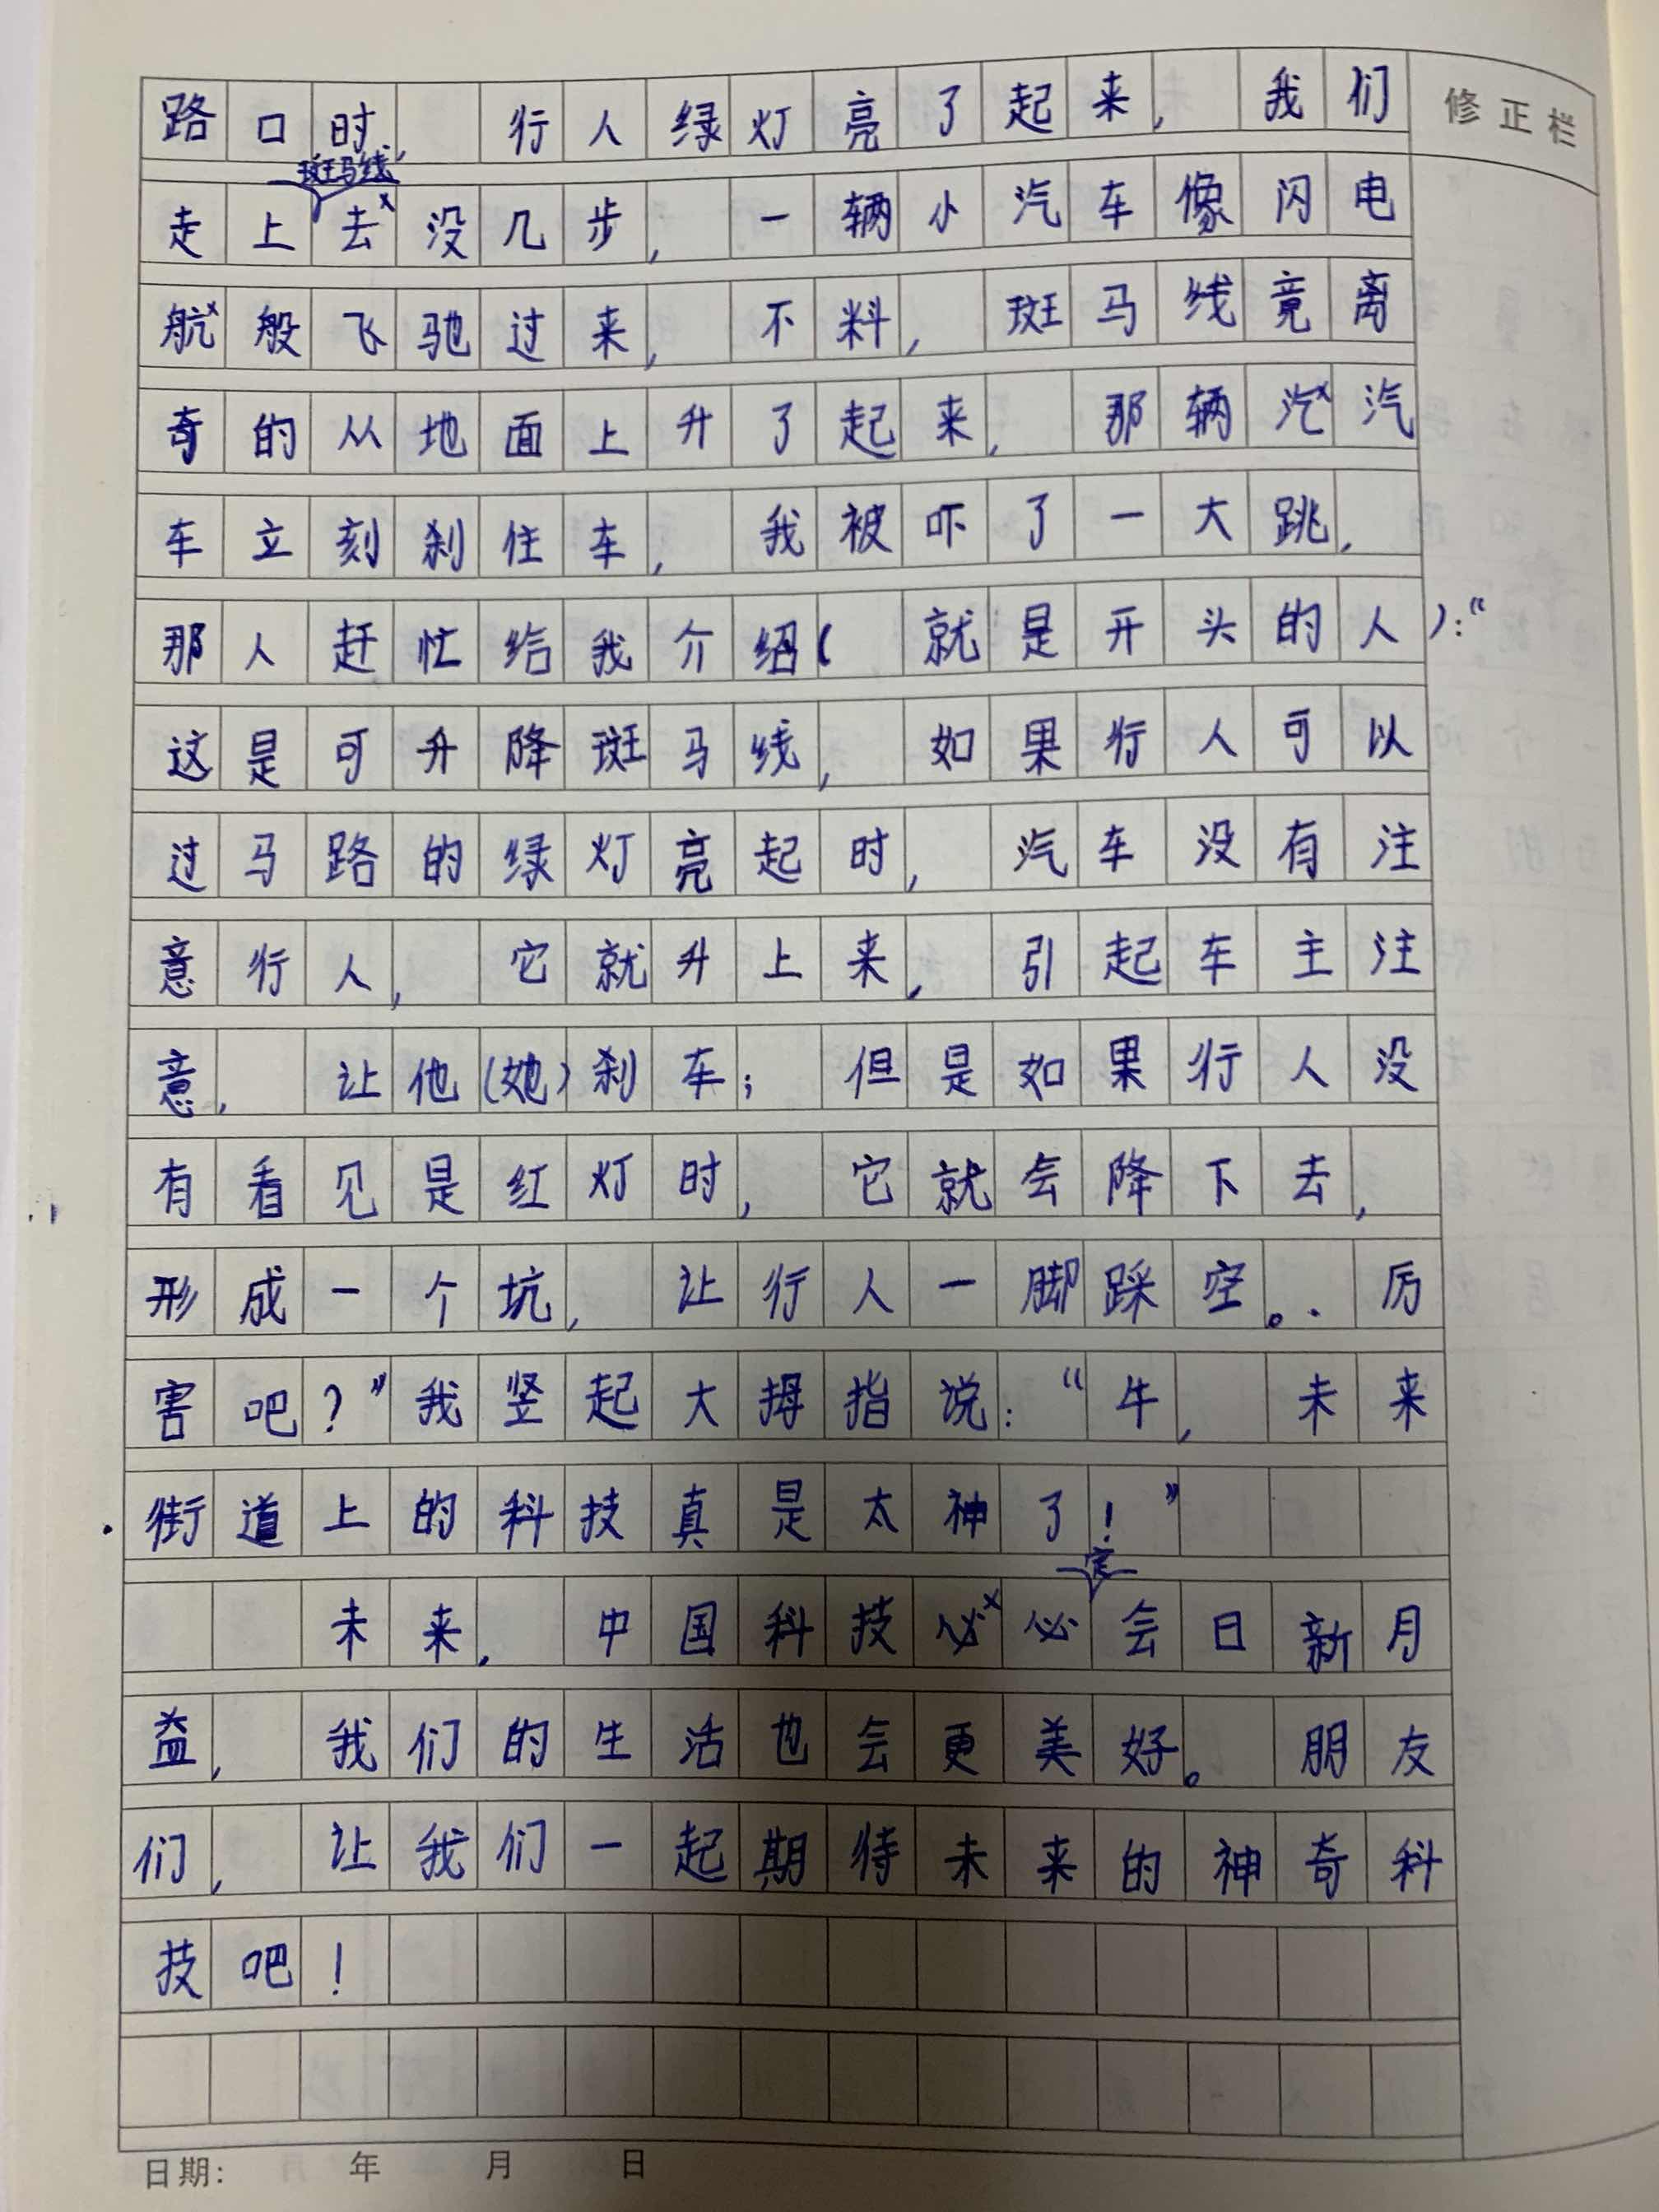 修正栏
路口时，行人绿灯亮了起来，我们
斑马线
走上去没几步，一辆小汽车像闪电
航般飞驰过来，不料，斑马线竟离
奇的从地面上升了起来，那辆汽汽
车立刻刹住车，我被吓了一大跳，
那人赶忙给我介绍（就是开头的人）：“
这是可升降斑马线，如果行人可以
过马路的绿灯亮起时，汽车没有注
意行人，它就升上来，引起车主注
意，让他（她）刹车；但是如果行人没
有看见是红灯时，它就会降下去，
形成一个坑，让行人一脚踩空。厉
害吧？”我竖起大拇指说：“牛，未来
街道上的科技真是太神了！”
定
未来，中国科技必必会日新月
益，我们的生活也会更美好。朋友
们，让我们一起期待未来的神奇科
技吧！
日期： 年 月 日